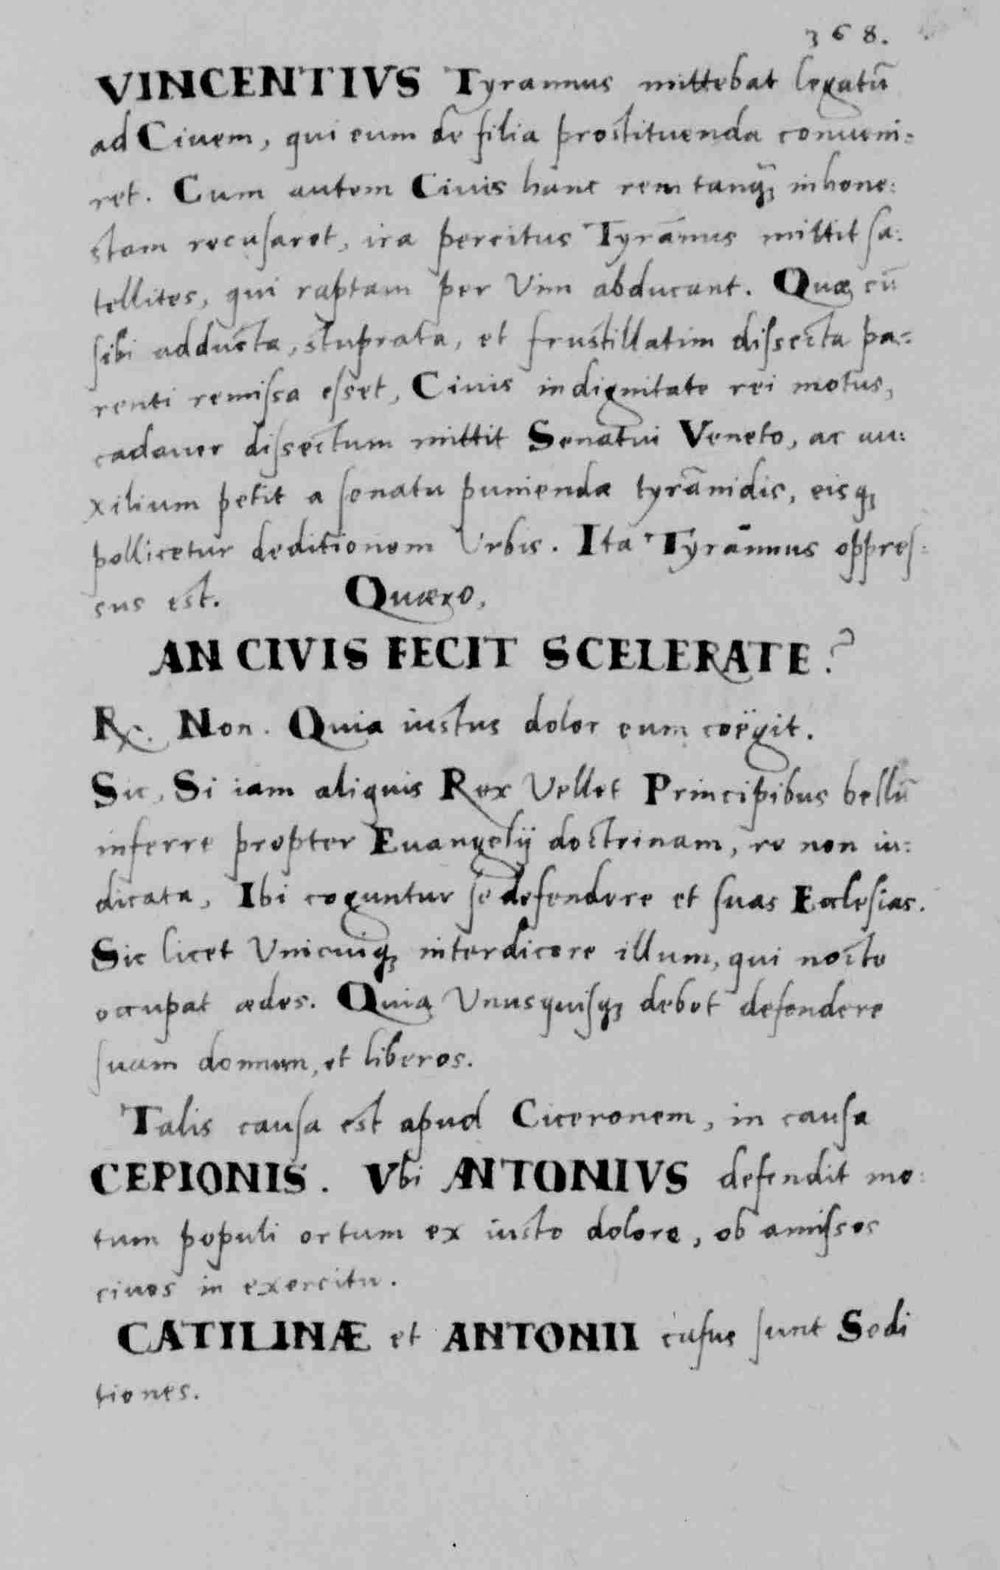 368.
VINCENTIVS Tyrannus mittebat legatū
ad Ciuem, qui eum de filia prostituenda conueni:
ret. Cum autem Ciuis hanc rem tanq̃ꝫ inhone:
stam recusaret, ira percitus Tyrãnus mittit sa:
tellites, qui raptam per Vim abducant. Quæ cū
sibi adducta, stuprata, et frustillatim dissecta pa:
renti remissa esset, Ciuis indignitate rei motus,
cadauer dissectum mittit Senatui Veneto, ac au:
xilium petit a senatu puniendæ tyrãnidis, eisqꝫ
pollicetur deditionem Vrbis. Ita Tyrãnnus oppres:
sus est. Quæro,
AN CIVIS FECIT SCELERATE?
R. Non. Quia iustus dolor eum coëgit.
Sic, Si iam aliquis Rex Vellet Principibus bellū
inferre propter Euangelÿ doctrinam, re non iu:
dicata, Ibi coguntur se defendere et suas Ecclesias.
Sic licet Vnicuiqꝫ interdicere illum, qui nocte
occupat ædes. Quia Vnusquisqꝫ debet defendere
suam domum, et liberos.
Talis causa est apud Ciceronem, in causa
CEPIONIS. Vbi ANTONIVS defendit mo:
tum populi ortum ex iusto dolore, ob amissos
ciues in exercitu.
CATILINÆ et ANTONII casus sunt Sedi
tiones.